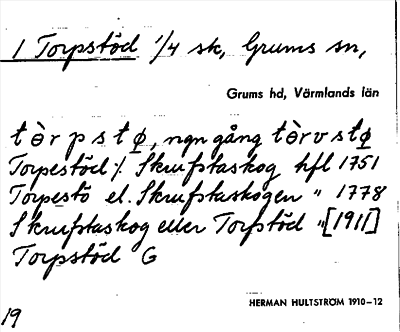 1 Torpstöd 1/4 sk, Grums sn,
Grums hd, Värmlands län
tὲrpstø, ngn gång tὲrvstø
Torpestöd ⁒ Skrufstaskog hfl 1751
Torpestö el. Skrufstaskogen " 1778
Skrufstaskog eller Torpstöd " [1911]
Torpstöd G
HERMAN HULTSTRÖM 1910–12
19